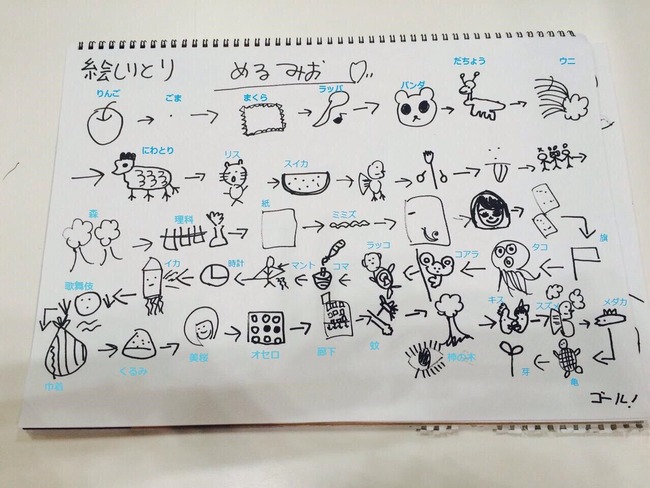 絵しりとり めるみお
りんご ごま まくら ラッパ パンダ だちょう ウニ
にわとり リス スイカ
森 理科 紙 ミミズ
歌舞伎 イカ 時計 マント コマ ラッコ コアラ タコ 旗
巾着 くるみ 美桜 オセロ 廊下 蚊 柿の木 キス スズメ メダカ
芽 亀
ゴール!